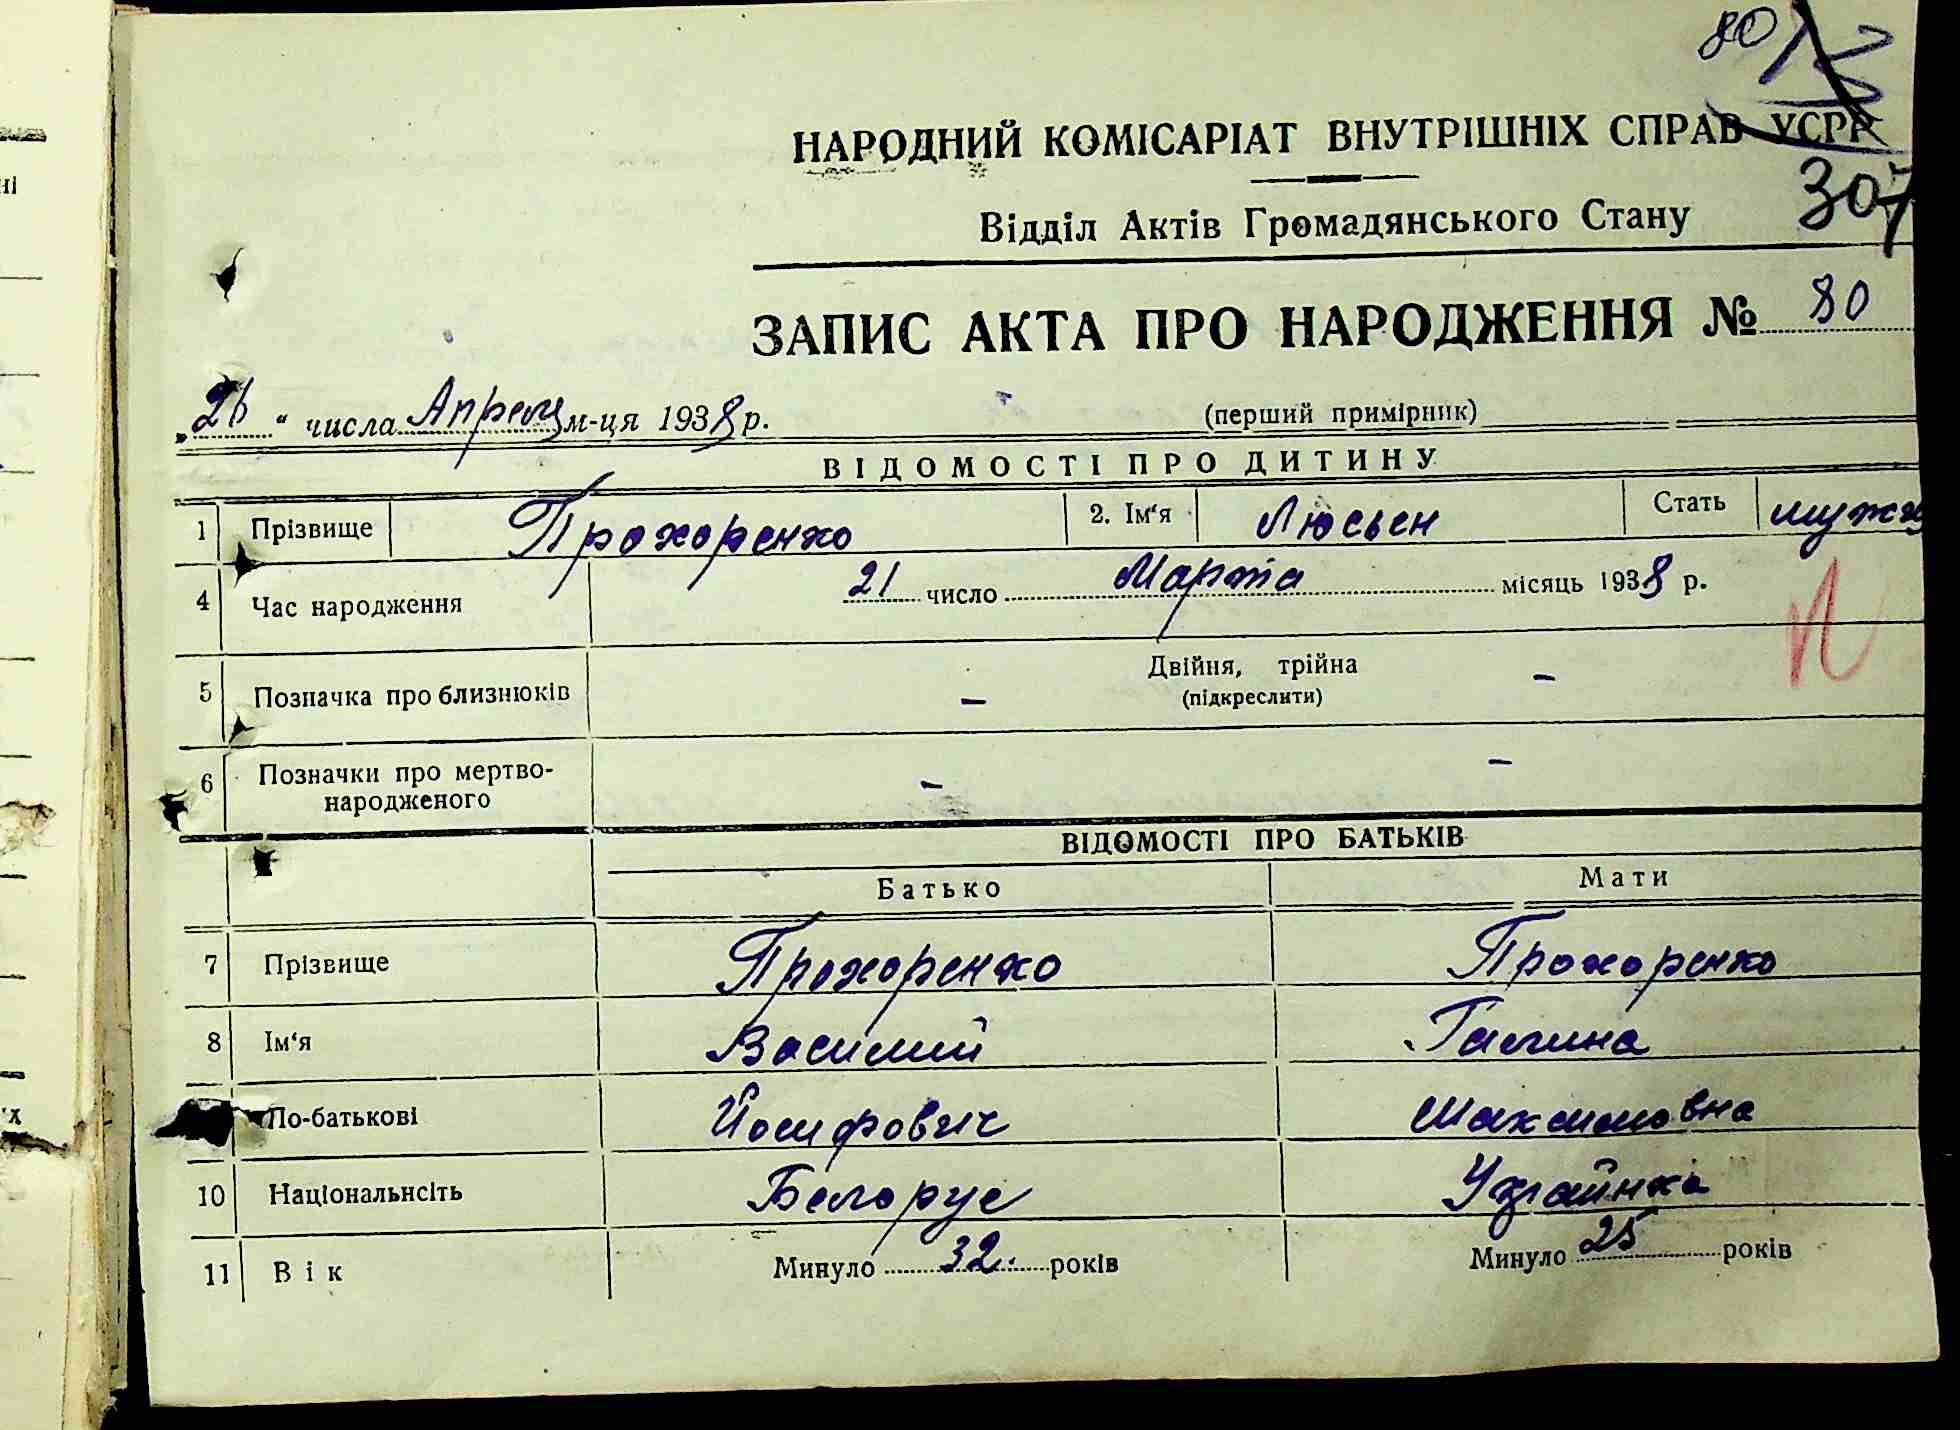 80
НАРОДНИЙ КОМІСАРІАТ ВНУТРІШНІХ СПРАВ УСРР
307
Відділ Актів Громадянського Стану
ЗАПИС АКТА ПРО НАРОДЖЕННЯ № 80
„26“ числа Апреля м-ця 1938 р. (перший примірник)
ВІДОМОСТІ ПРО ДИТИНУ
1 Прізвище Прохоренко 2. Ім'я Люсьен Стать мужск
4 Час народження 21 число Марта місяць 1938 р.
5 Позначка про близнюків – Двійня, трійна –
(підкреслити)
6 Позначки про мертво-
народженого – –
ВІДОМОСТІ ПРО БАТЬКІВ
Батько Мати
7 Прізвище Прохоренко Прохоренко
8 Ім'я Василий Галина
По-батькові Йосифович Максимовна
10 Національнсіть Белорус Украйнка
11 Вік Минуло 32. років Минуло 25 років
ні
х